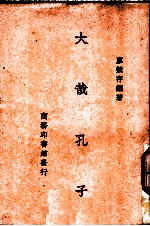 存編著
大哉孔子
商務印書館發行